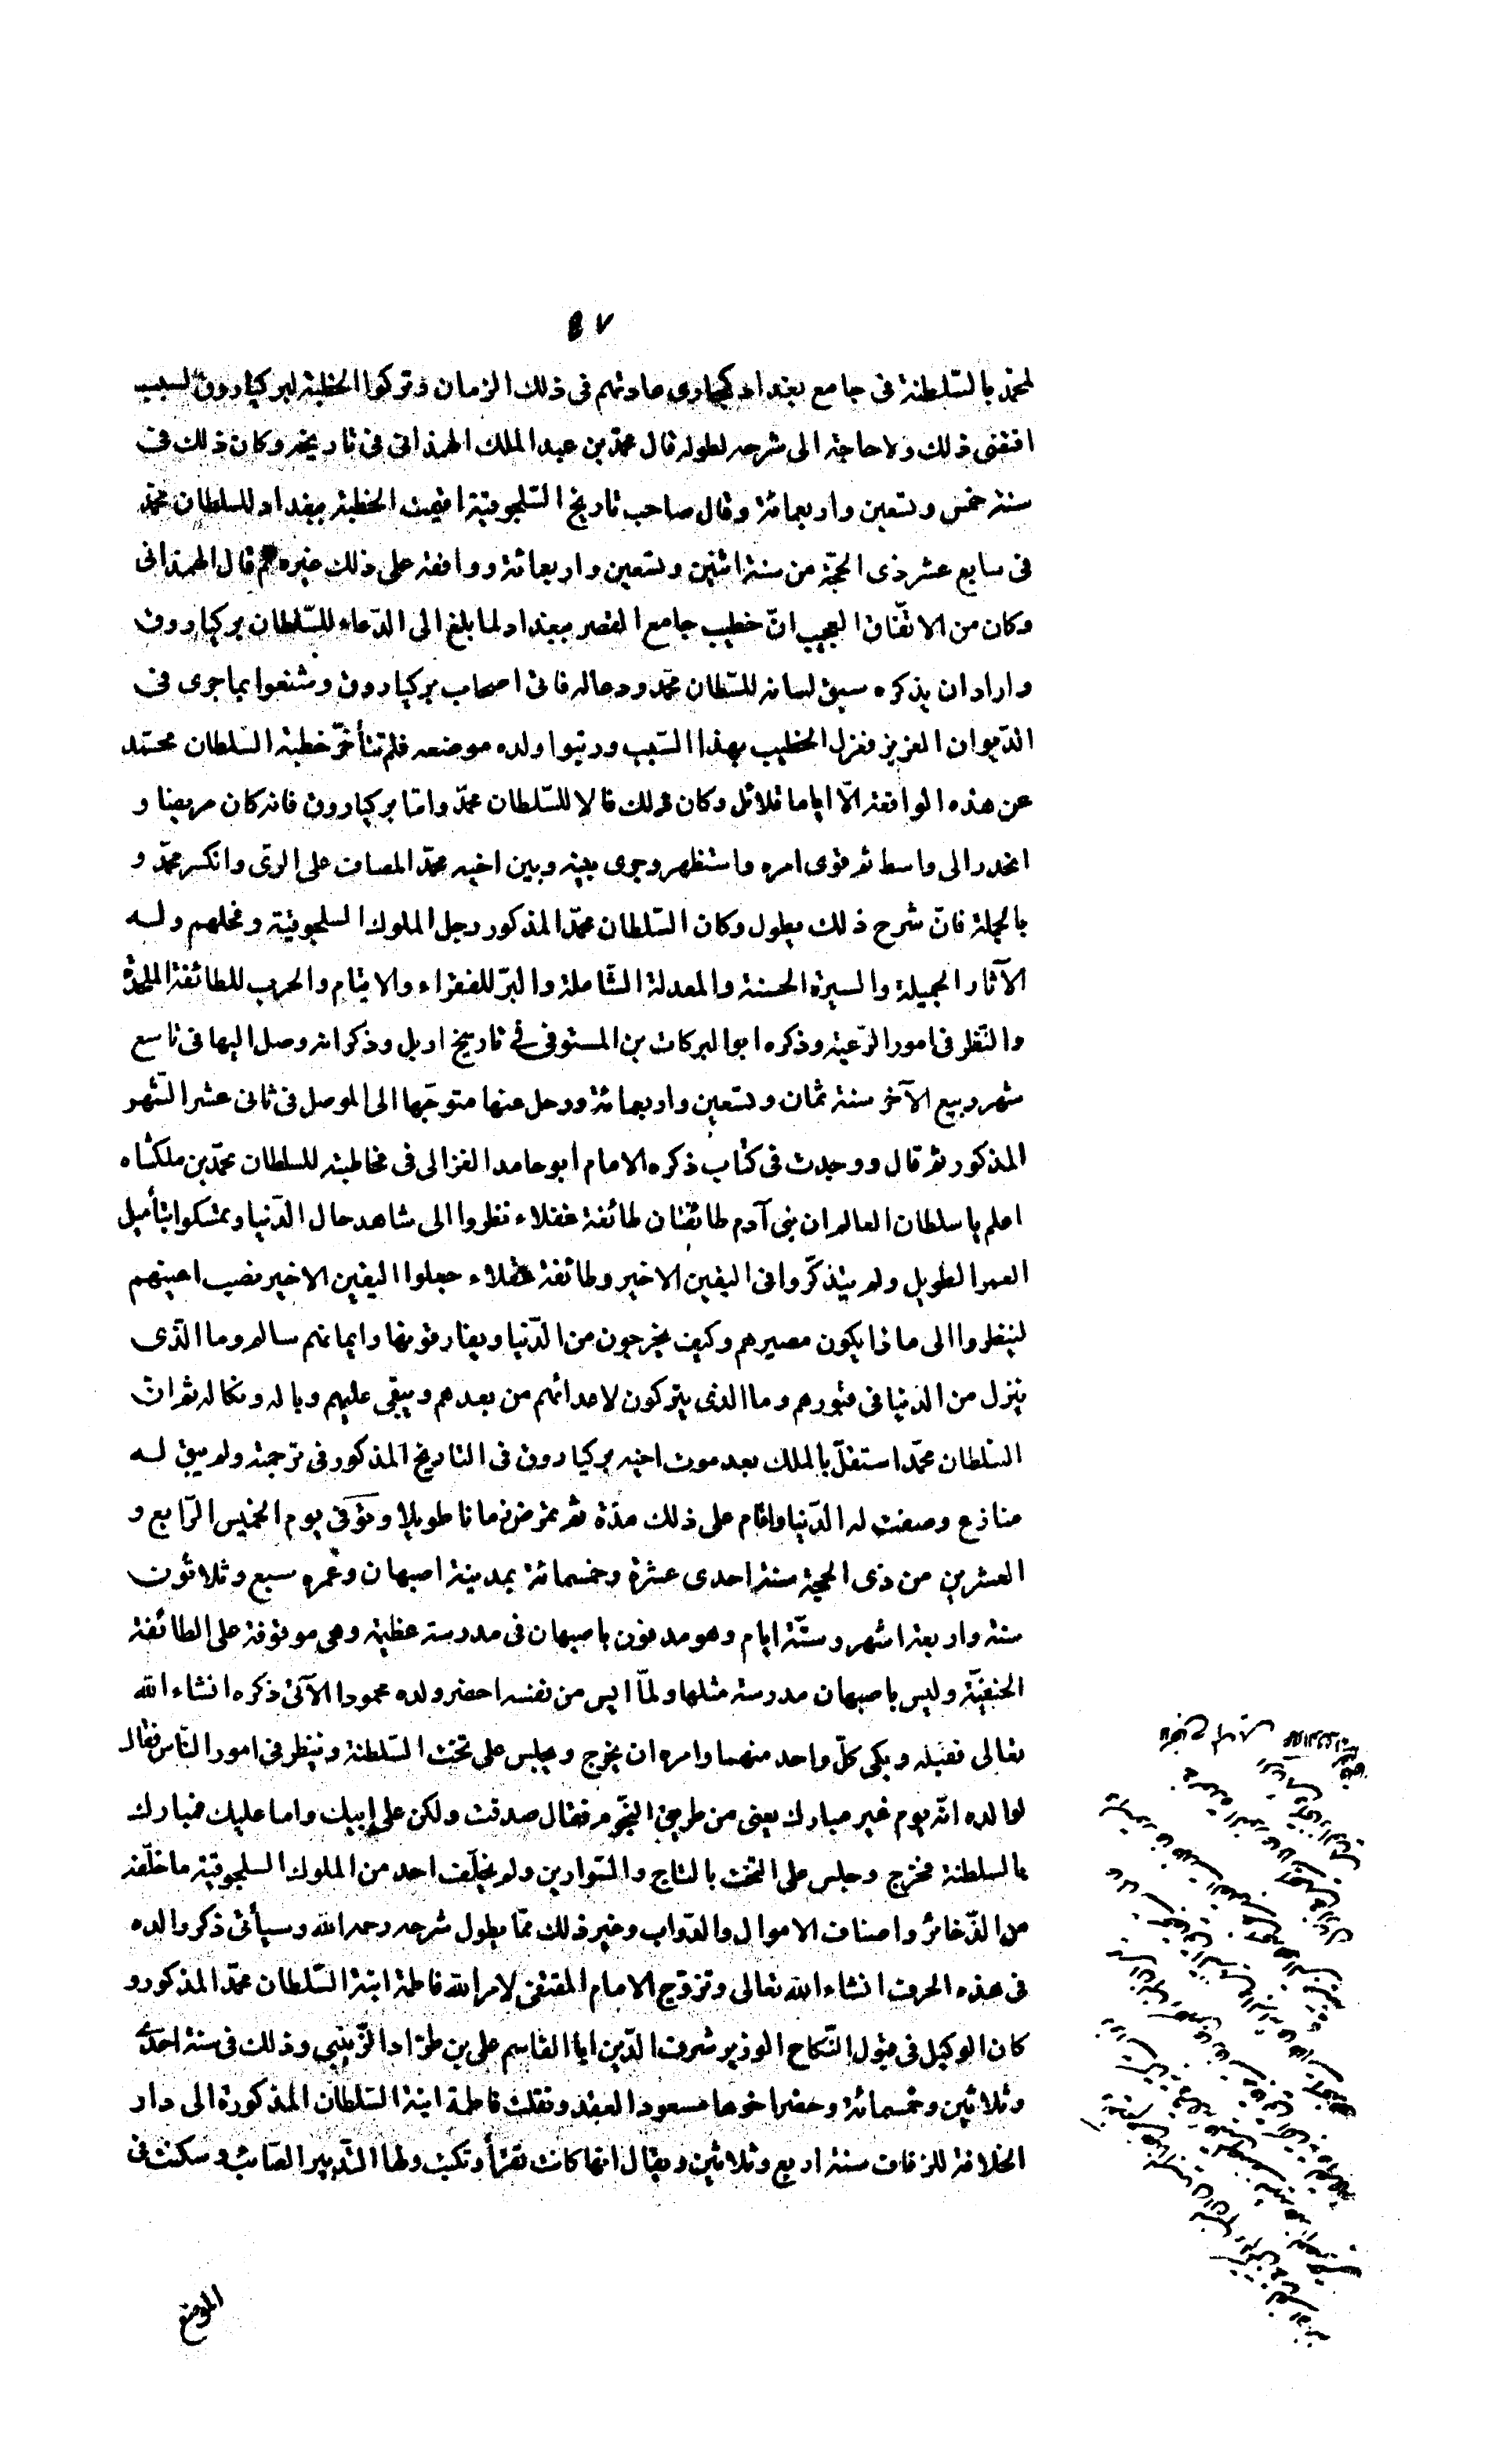 ٥٧
لمحمد بالسلطنة فى جامع بغداد كجارى عادتهم فى ذلك الزمان وتركوا الخطبة لبركياروق لسبب
اقتضى ذلك ولا حاجة الى شرحه لطوله قال محمد بن عبد الملك الهمذانى فى تاريخه وكان ذلك فى
سنة خمس وتسعين واربعمائة وقال صاحب تاريخ السلجوقية اقيمت الخطبة ببغداد للسلطان محمد
فى سابع عشر ذى الحجة من سنة اثنين وتسعين واربعمائة ووافقه على ذلك غيره ثم قال الهمذانى
وكان من الاتّفاق العجيب انّ خطيب جامع القصر ببغداد لما بلغ الى الدّعاء للسّلطان بركياروق
واراد ان يذكره سبق لسانه للسّلطان محمّد ودعا له فاتى اصحاب بركياروق وشنعوا بما جرى فى
الدّيوان العزيز فعزل الخطيب بهذا السّبب ورتبوا ولده موضعه فلم تتأخّر خطبة السلطان محمّد
عن هذه الواقعة الّا اياما قلائل وكان ذلك فالا للسّلطان محمّد وامّا بركياروق فانه كان مريضا و
انحدر الى واسط ثم قوى امره واستظهر وجرى بينه وبين اخيه محمّد المصاف على الرّى وانكسر محمّد و
بالجملة فانّ شرح ذلك يطول وكان السّلطان محمّد المذكور رجل الملوك السلجوقيّة وفحلهم وله
الآثار الجميلة والسيرة الحسنة والمعدلة الشّاملة والبرّ للفقراء والايتام والحرب للطائفة الملحدة
والنّظر فى امور الرّعية وذكره ابو البركات بن المستوفى فى تاريخ اربل وذكر انه وصل اليها فى تاسع
شهر ربيع الآخر سنة ثمان وتسعين واربعمائة ورحل عنها متوجّها الى الموصل فى ثانى عشر الشّهر
المذكور ثم قال ووجدت فى كتاب ذكره الامام أبو حامد الغزالى فى مخاطبته للسلطان محمّد بن ملكشاه
اعلم يا سلطان العالم ان بنى آدم طائفتان طائفة غفلاء نظروا الى شاهد حال الدّنيا وتمسّكوا بتأميل
العمر الطويل ولم يتذكّروا فى اليقين الاخير وطائفة عقلاء جعلوا اليقين الاخير نصب اعينهم
لينظروا الى ماذا يكون مصيرهم وكيف يخرجون من الدّنيا ويفارقونها وايمانهم سالم وما الّذى
ينزل من الدنيا فى قبورهم وما الذى يتركون لاعدائهم من بعدهم ويبقى عليهم وباله ونكاله ثم انّ
السّلطان محمّدا استقلّ بالملك بعد موت اخيه بركياروق فى التاريخ المذكور فى ترجمته ولم يبق له
منازع وصفت له الدّنيا واقام على ذلك مدّة ثم تمرّض زمانا طويلا وتوفّى يوم الخميس الرّابع و
العشرين من ذى الحجة سنة احدى عشرة وخمسمائة بمدينة اصبهان وعمره سبع وثلاثون
سنة واربعة اشهر وستّة ايام وهو مدفون باصبهان فى مدرسة عظيمة وهى موقوفة على الطائفة
الحنفيّة وليس باصبهان مدرسة مثلها ولمّا ايس من نفسه احضر ولده محمودا الآتى ذكره انشاء الله
تعالى فقبله وبكى كلّ واحد منهما وامره ان يخرج ويجلس على تخت السّلطنة وينظر فى امور النّاس فقال
لوالده انّه يوم غير مبارك يعنى من طريق النّجوم فقال صدقت ولكن على ابيك واما عليك فمبارك
بالسلطنة فخرج وجلس على التخت بالتاج والسّوارين ولم يخلّف احد من الملوك السلجوقيّة ما خلّفه
من الذّخائر واصناف الاموال والدّواب وغير ذلك ممّا يطول شرحه رحمه الله وسيأتى ذكر والده
فى هذه الحرف انشاء الله تعالى وتزوّج الامام المقتفى لامر الله فاطمة ابنة السّلطان محمّد المذكور و
كان الوكيل فى قبول النّكاح الوزير شرف الدّين ابا القاسم على بن طرّاد الزّينبى وذلك فى سنة احدى
وثلاثين وخمسمائة وحضر اخوها مسعود العقد ونقلت فاطمة ابنة السّلطان المذكورة الى دار
الخلافة للزفاف سنة اربع وثلاثين ويقال انها كانت تقرأ وتكتب ولها التّدبير الصّائب وسكنت فى
الموضع